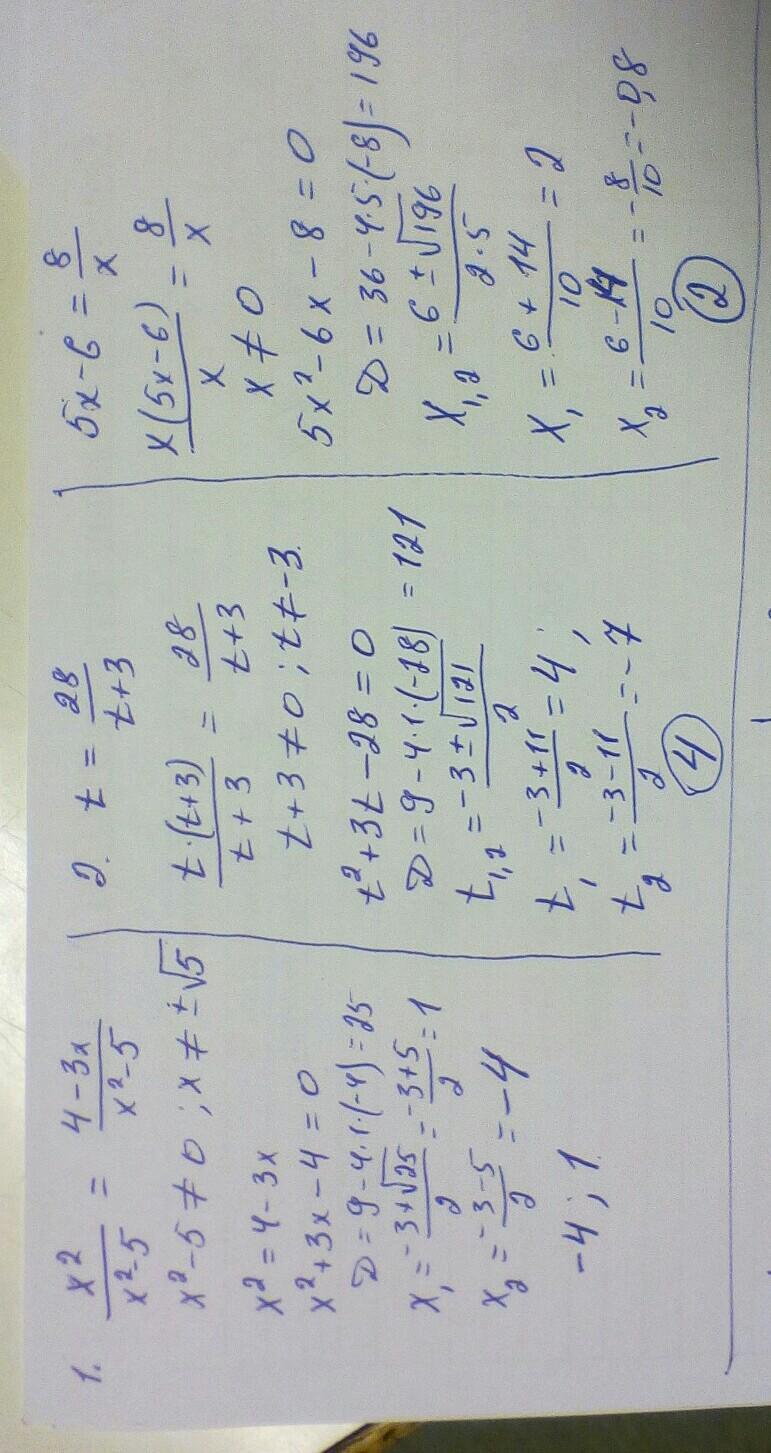 1. x²/(x²-5) = (4-3x)/(x²-5)
x²-5≠0; x≠±√5
x²=4-3x
x²+3x-4=0
D=9-4·1·(-4)=25
x₁=(-3+√25)/2=(-3+5)/2=1
x₂=(-3-5)/2=-4
-4; 1
2. t=28/(t+3)
t·(t+3)/(t+3) = 28/(t+3)
t+3≠0; t≠-3
t²+3t-28=0
D=9-4·1·(-28)=121
t₁,₂=(-3±√121)/2
t₁=(-3+11)/2=4;
t₂=(-3-11)/2=-7
4
5x-6=8/x
x(5x-6)/x=8/x
x≠0
5x²-6x-8=0
D=36-4·5·(-8)=196
x₁,₂=(6±√196)/(2·5)
x₁=(6+14)/10=2
x₂=(6-14)/10=-8/10=-0,8
2